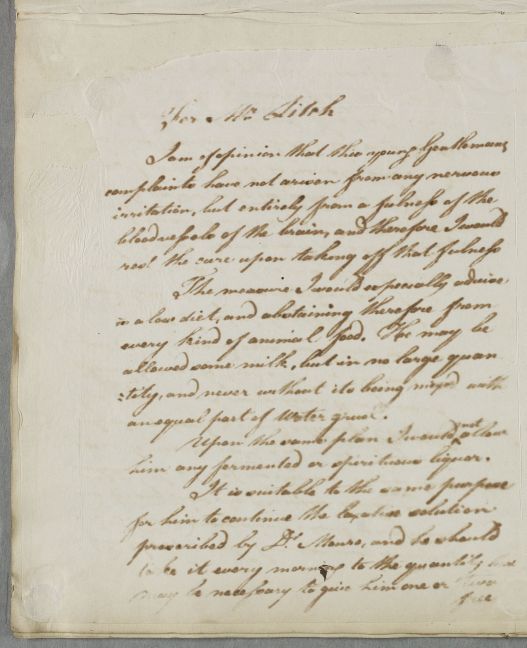 For Mr. Fitch
I am of opinion that this young Gentlemans
complaints have not arisen from any nervous
irritation, but entirely from a fulness of the
bloodvessels of the brain, and therefore I would
rest the cure upon taking off that fulness
The measure I would especially advise
is a low diet, and abstaining therefore from
every kind of animal food. He may be
allowed some milk, but in no large quan
-tity, and never without its being mixed with
an equal part of Water gruel.
Upon the same plan I would not allow
him any fermented or spirituous liquor.
It is suitable to the same purpose
for him to continue the laxative solution
prescribed by Dr. Monro, and he should
take it every morning to the quantity that
may be necessary to give him one or two
free